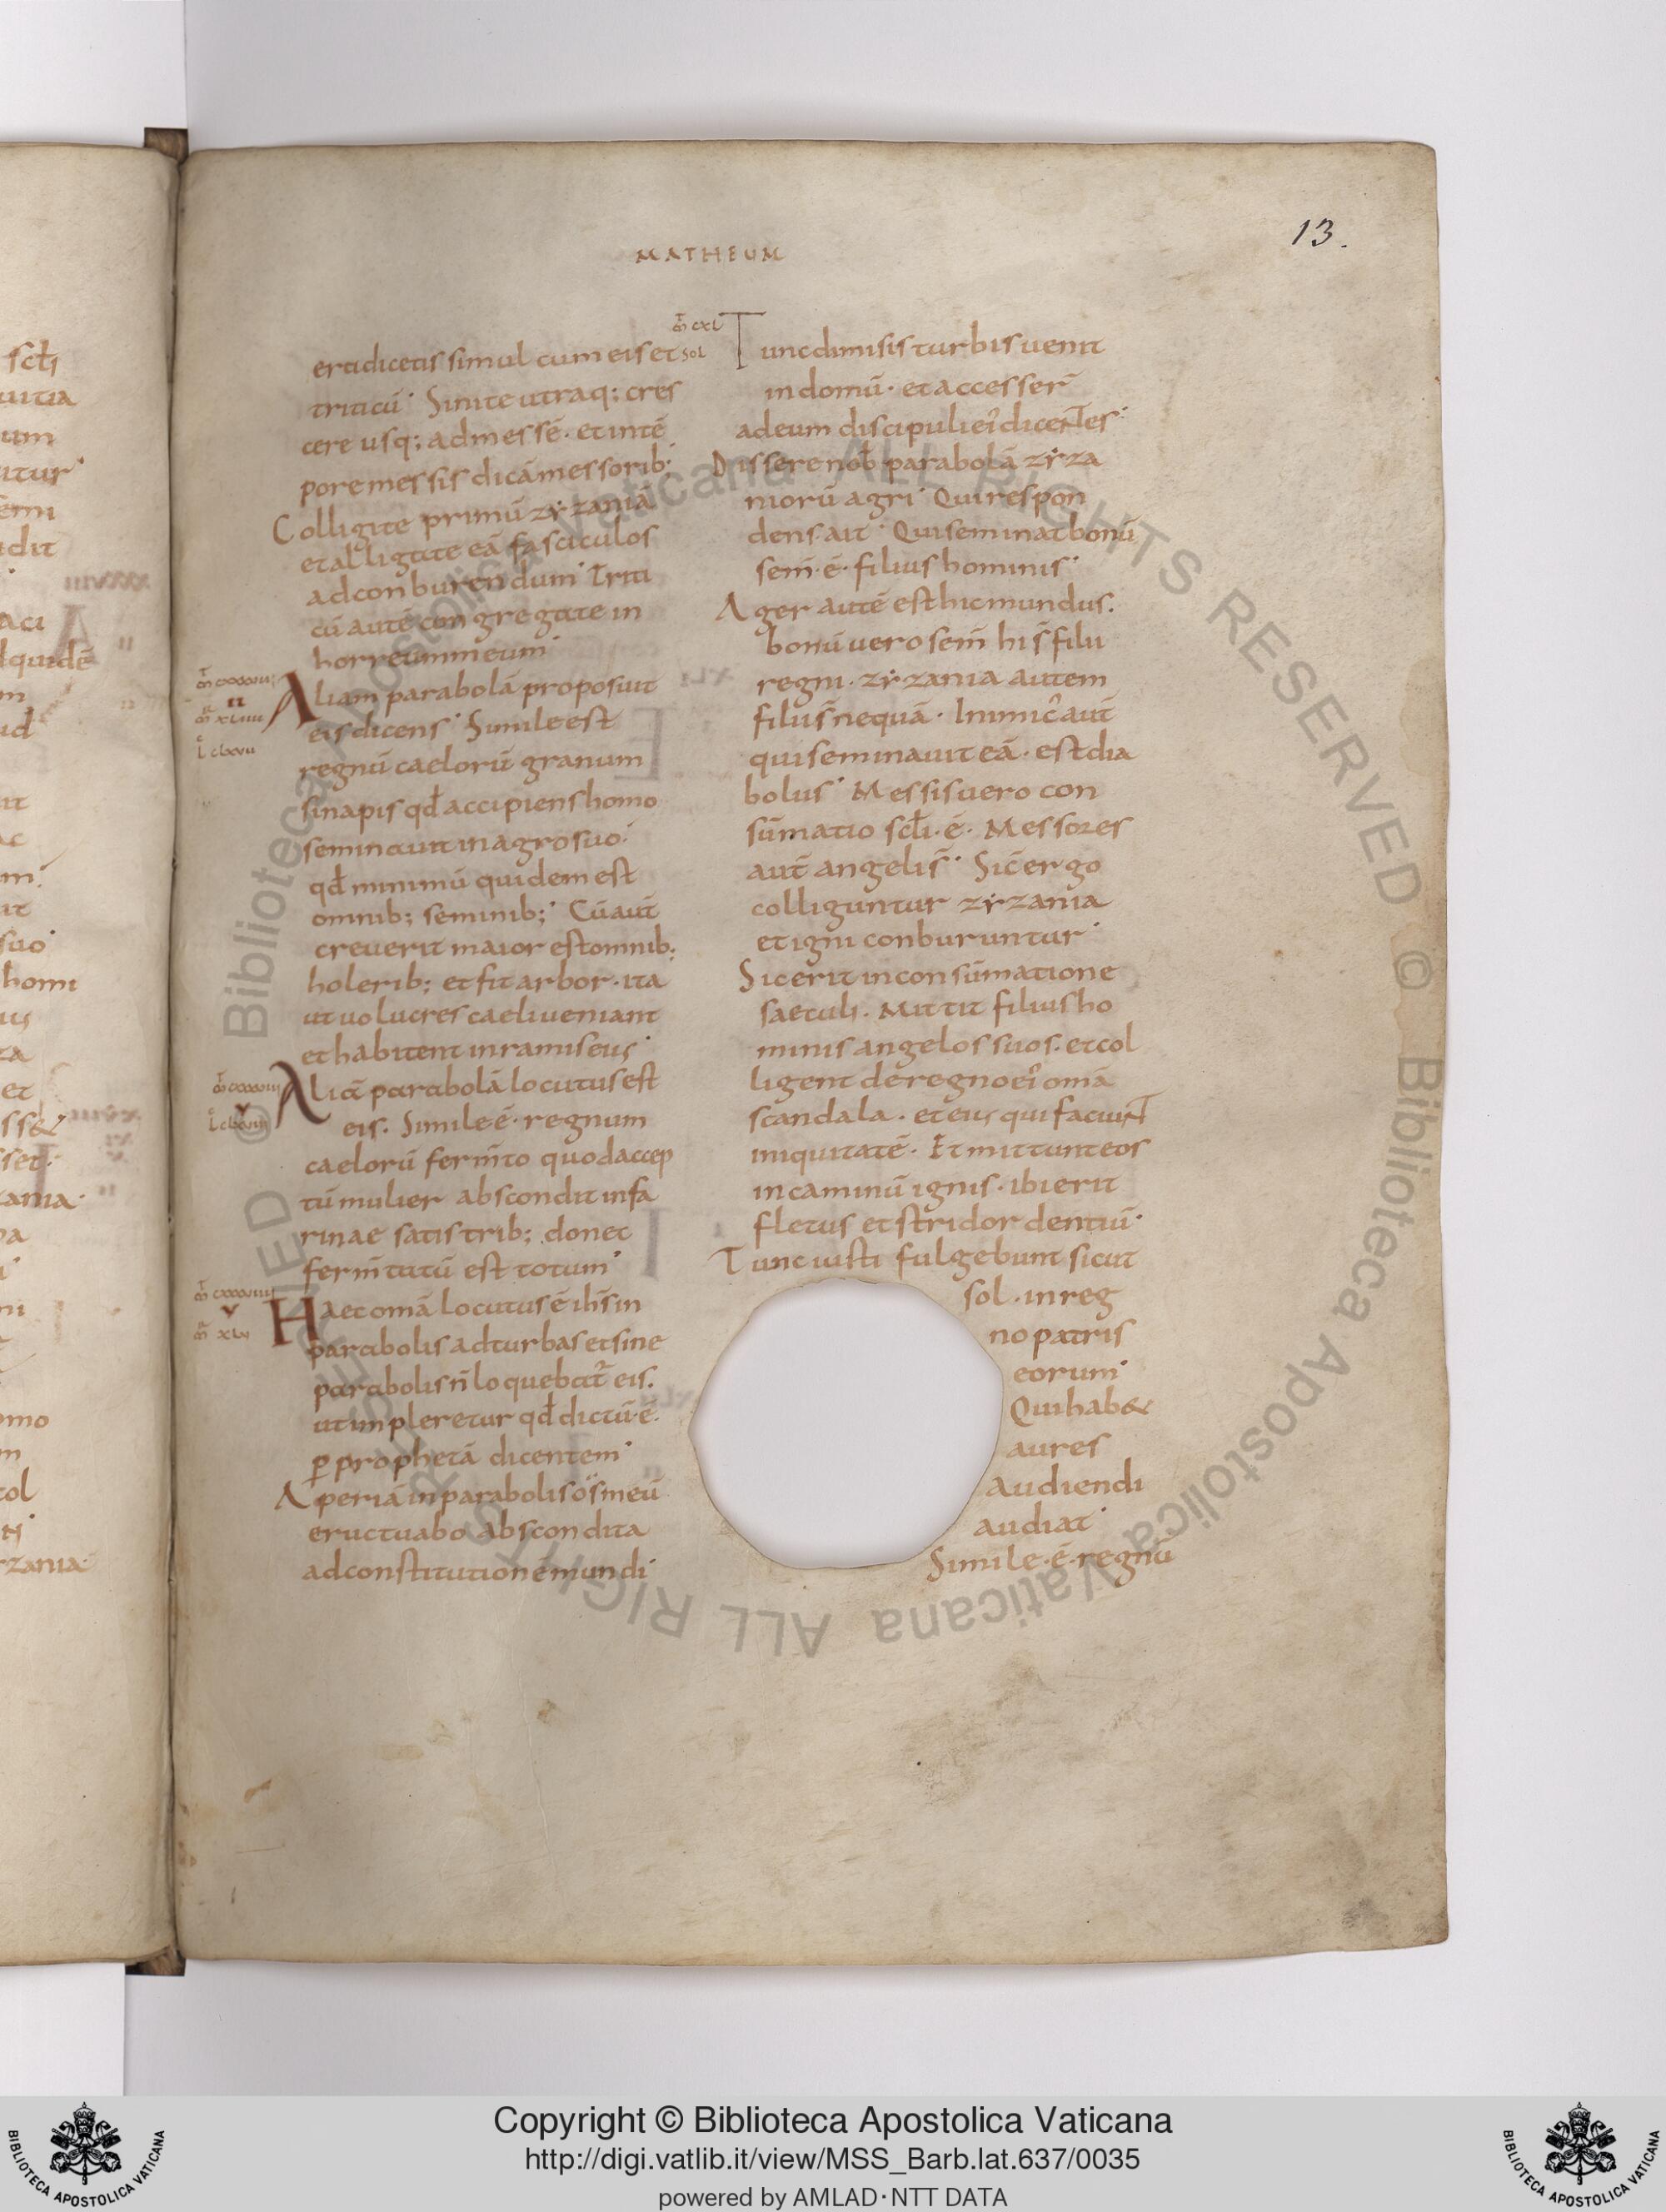 MATHEUM
13.
eradicetis simul cum eis et
triticū· Sinite utraq; cres
cere usq; ad messē· et in tē
pore messis dicā messorib;·
Colligite primū zyzaniā
et alligate eā fasciculos
ad conburendum· Triti
cū autē congregate in
horreum meum·
Aliam parabolā proposuit
eis dicens· Simile est
regnū caelorū granum
sinapis qđ accipiens homo
seminauit in agro suo·
qđ minimū quidem est
omnib; seminib;· Cū aut̄
creuerit maior est omnib;
holerib; et fit arbor· ita
ut uolucres caeli ueniant
et habitent in ramis eius·
Aliā parabolā locutus est
eis. Simile ē· regnum
caelorū ferm̄to quod accep
tū mulier abscondit in fa
rinae satis trib; donec
ferm̄tatū est totum·
Haec omā locutus ē ih̄s in
parabolis ad turbas et sine
parabolis n̄ loquebat̄ eis.
ut impleretur qđ dictū· ē·
ꝑ prophetā dicentem·
Aperiā in parabolis os meū
eructuabo abscondita
ad constitutionē mundi·
m̄ cxl
sol
Tunc dimisis turbis uenit
in domū· et accesser̄
ad eum discipuli ei' dicentes·
Dissere nob̄ parabolā zyza
niorū agri· Qui respon
dens ait· Qui seminat bonū
sem̄· ē· filius hominis·
Ager autē est hic mundus.
bonū uero sem̄ hi s̄ filii
regni· zyzania autem
filii s̄ nequā· Inimic' aut̄
qui seminauit eā· est dia
bolus· Messis uero con
sūmatio scl̄i· ē· Messores
aut̄ angeli s̄· Sic̄ ergo
colliguntur zyzania
et igni conburuntur·
Sic erit in consūmatione
saeculi. Mittit filius ho
minis angelos suos. et col
ligent de regno ei' omā
scandala· et eius qui faciunt
iniquitatē· Et mittunt eos
in caminū ignis· ibi erit
fletus et stridor dentiū·
Tunc iusti fulgebunt sicut
sol· in reg
no patris
eorum·
Qui hab&
aures
audiendi
audiat·
Simile· ē· regnū
Copyright © Biblioteca Apostolica Vaticana
http://digi.vatlib.it/view/MSS_Barb.lat.637/0035
powered by AMLAD·NTT DATA
BIBLIOTECA APOSTOLICA VATICANA
BIBLIOTECA APOSTOLICA VATICANA
© Biblioteca Apostolica Vaticana ALL RIGHTS RESERVED © Biblioteca Apostolica Vaticana ALL RIGHTS RESERVED